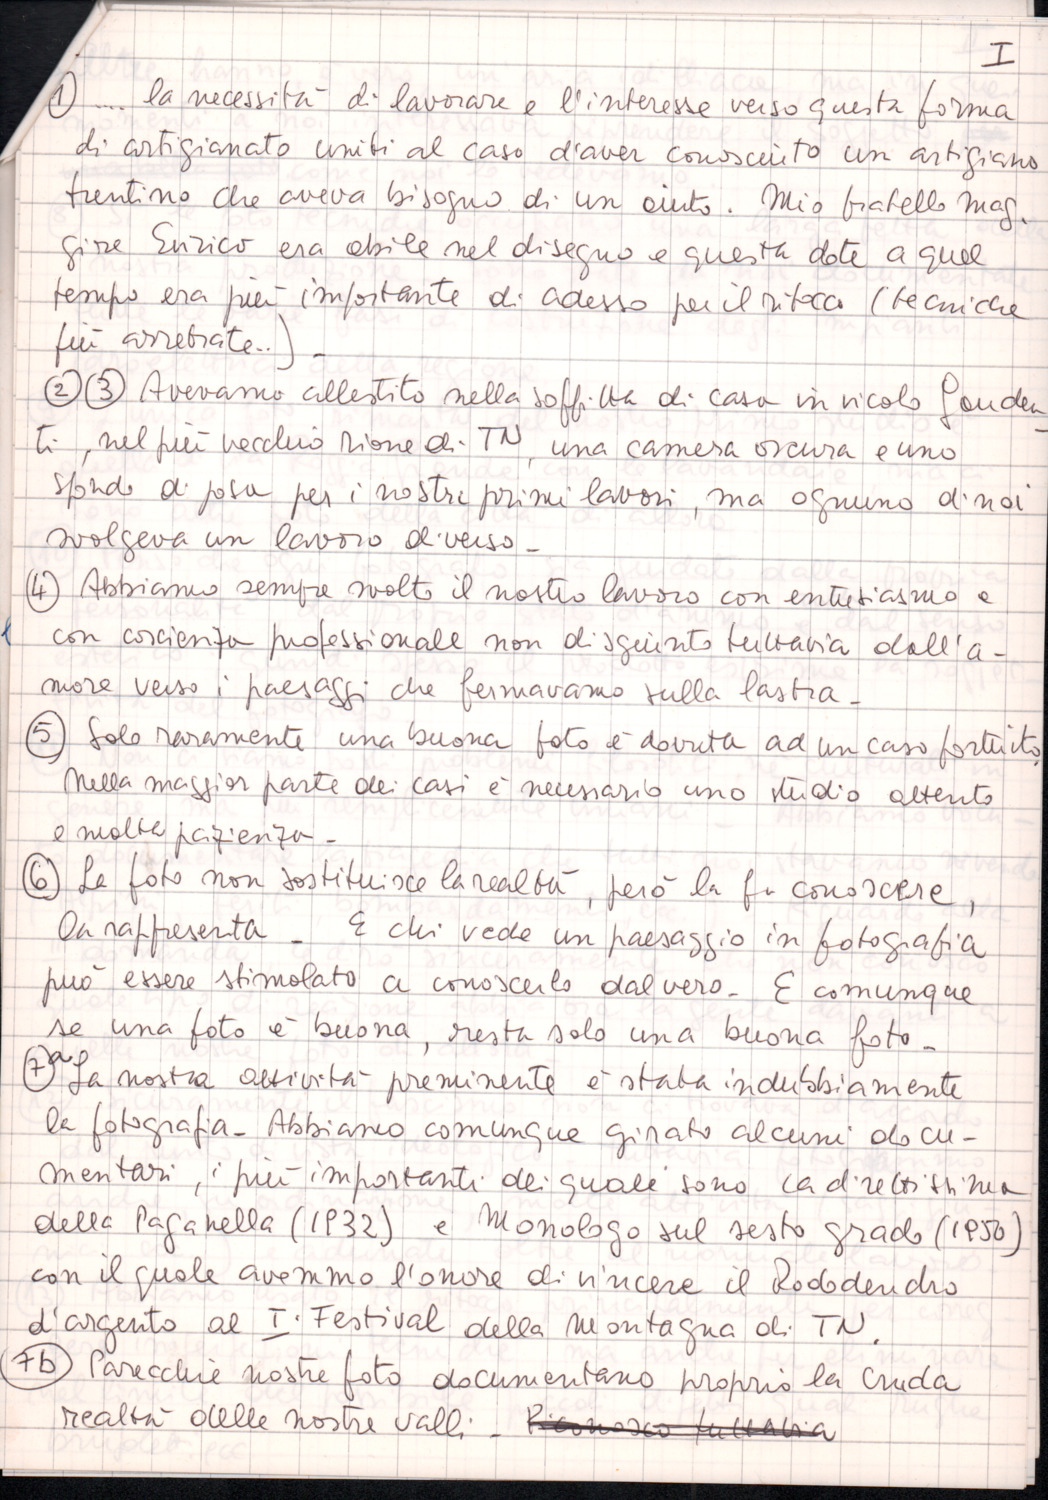 I
① .... la necessità di lavorare e l'interesse verso questa forma
di artigianato uniti al caso d'aver conosciuto un artigiano
trentino che aveva bisogno di un aiuto. Mio fratello mag.
giore Enrico era abile nel disegno e questa dote a quel
tempo era più importante di adesso per il ritocco (tecniche
più arretrate..) -
② ③ Avevamo allestito nella soffitta di casa in vicolo Gauden
ti, nel più vecchio rione di TN, una camera oscura e uno
sfondo di posa per i nostri primi lavori, ma ognuno di noi
svolgeva un lavoro diverso -
④ Abbiamo sempre svolto il nostro lavoro con entusiasmo e
con coscienza professionale non disgiunto tuttavia dall'a-
more verso i paesaggi che fermavamo sulla lastra -
⑤ Solo raramente una buona foto è dovuta ad un caso fortuito.
Nella maggior parte dei casi è necessario uno studio attento
e molta pazienza -
⑥ La foto non sostituisce la realtà, però la fa conoscere,
la rappresenta - E chi vede un paesaggio in fotografia
può essere stimolato a conoscerlo dal vero - E comunque
se una foto è buona, resta solo una buona foto -
7a La nostra attività preminente è stata indubbiamente
la fotografia - Abbiamo comunque girato alcuni docu-
mentari, i più importanti dei quali sono La direttissima
della Paganella (1932) e Monologo sul sesto grado (1950)
con il quale avemmo l'onore di vincere il Rododendro
d'argento al I. Festival della Montagna di TN.
7b Parecchie nostre foto documentano proprio la cruda
realtà delle nostre valli - Riconosco tuttavia